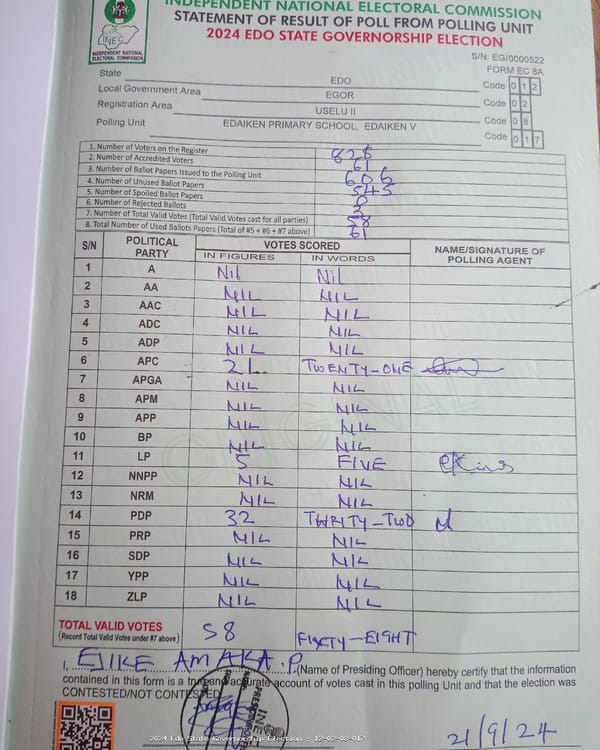 INDEPENDENT NATIONAL ELECTORAL COMMISSION
STATEMENT OF RESULT OF POLL FROM POLLING UNIT
2024 EDO STATE GOVERNORSHIP ELECTION
INEC
INDEPENDENT NATIONAL
ELECTORAL COMMISSION
S/N: EG/0000522
FORM EC 8A
State EDO Code 0 1 2
Local Government Area EGOR Code 0 2
Registration Area USELU II Code 0 8
Polling Unit EDAIKEN PRIMARY SCHOOL, EDAIKEN V Code 0 1 7
1. Number of Voters on the Register 828
2. Number of Accredited Voters 61
3. Number of Ballot Papers Issued to the Polling Unit 606
4. Number of Unused Ballot Papers 545
5. Number of Spoiled Ballot Papers 0
6. Number of Rejected Ballots 3
7. Number of Total Valid Votes (Total Valid Votes cast for all parties) 58
8. Total Number of Used Ballots Papers (Total of #5 + #6 + #7 above) 61
S/N POLITICAL PARTY VOTES SCORED NAME/SIGNATURE OF POLLING AGENT
IN FIGURES IN WORDS
1 A Nil Nil
2 AA NIL NIL
3 AAC NIL NIL
4 ADC NIL NIL
5 ADP NIL NIL
6 APC 21 TWENTY-ONE
7 APGA NIL NIL
8 APM NIL NIL
9 APP NIL NIL
10 BP NIL NIL
11 LP 5 FIVE
12 NNPP NIL NIL
13 NRM NIL NIL
14 PDP 32 THRITY-TWO
15 PRP NIL NIL
16 SDP NIL NIL
17 YPP NIL NIL
18 ZLP NIL NIL
ORIGINAL
TOTAL VALID VOTES 58 FIXTY-EIGHT
(Record Total Valid Votes under #7 above)
I, EJIKE AMAKA .P. (Name of Presiding Officer) hereby certify that the information
contained in this form is a true and accurate account of votes cast in this polling Unit and that the election was
CONTESTED/NOT CONTESTED
21/9/24
2024 Edo State Governorship Election : 12-02-08-017